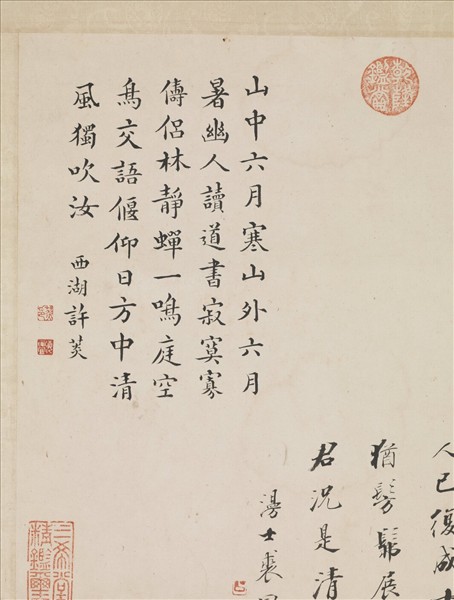 乾隆鑑賞
山中六月寒山外六月
暑幽人讀道書寂寞寡
儔侶林靜蟬一鳴庭空
鳥交語偃仰日方中清
風獨吹汝
西湖許
人已復成
猶髣髴展
君況是清
漫士裘
三希堂精鑑璽